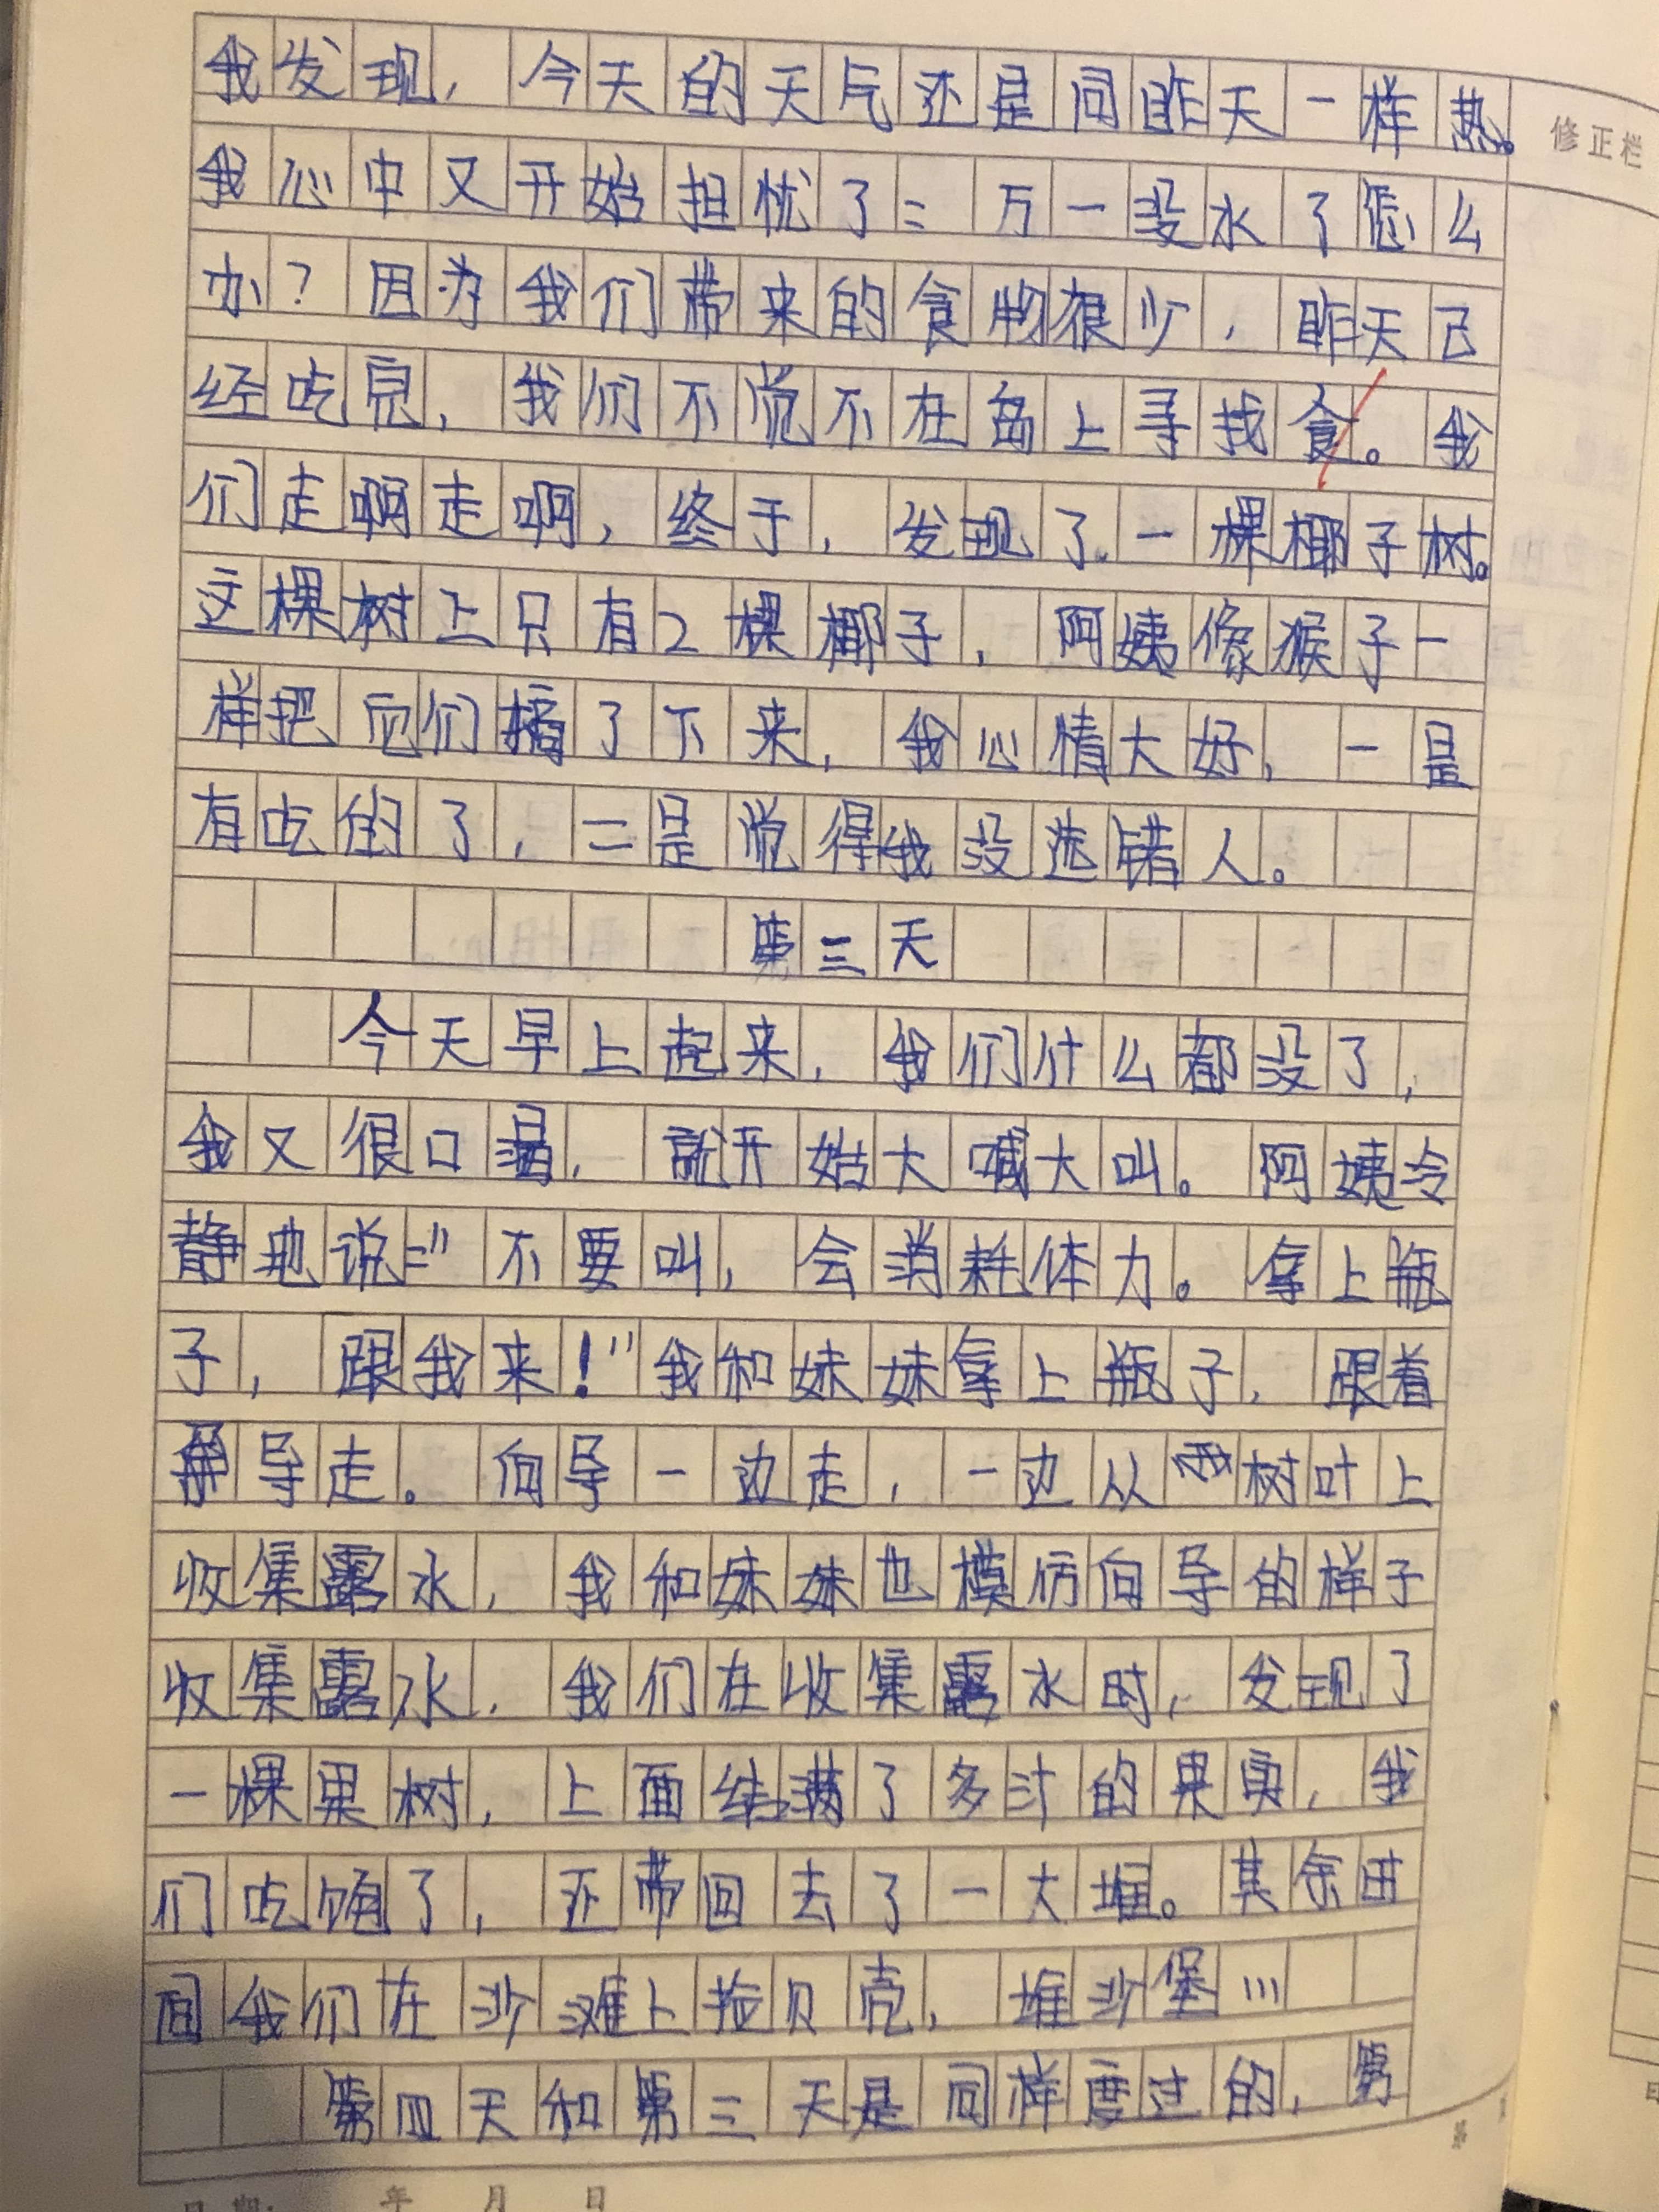 我发现，今天的天气还是同昨天一样热。
修正栏
我心中又开始担忧了：万一没水了怎么
办？因为我们带来的食物很少，昨天已
经吃完，我们不觉不在岛上寻找食。我
们走啊走啊，终于，发现了一棵椰子树。
这棵树上只有2棵椰子，阿姨像猴子一
样把它们摘了下来，我心情大好，一是
有吃的了，二是觉得我没选错人。
第三天
今天早上起来，我们什么都没了，
我又很口渴，就开始大喊大叫。阿姨冷
静地说："不要叫，会消耗体力。拿上瓶
子，跟我来！"我和妹妹拿上瓶子，跟着
导走。向导一边走，一边从树叶上
收集露水，我和妹妹也模仿向导的样子
收集露水，我们在收集露水时，发现了
一棵果树，上面结满了多汁的果实，我
们吃饱了，还带回去了一大堆。其余田
间我们在沙滩上捡贝壳，堆沙堡…
第四天和第三天是同样度过的，第
日期： 年 月 日